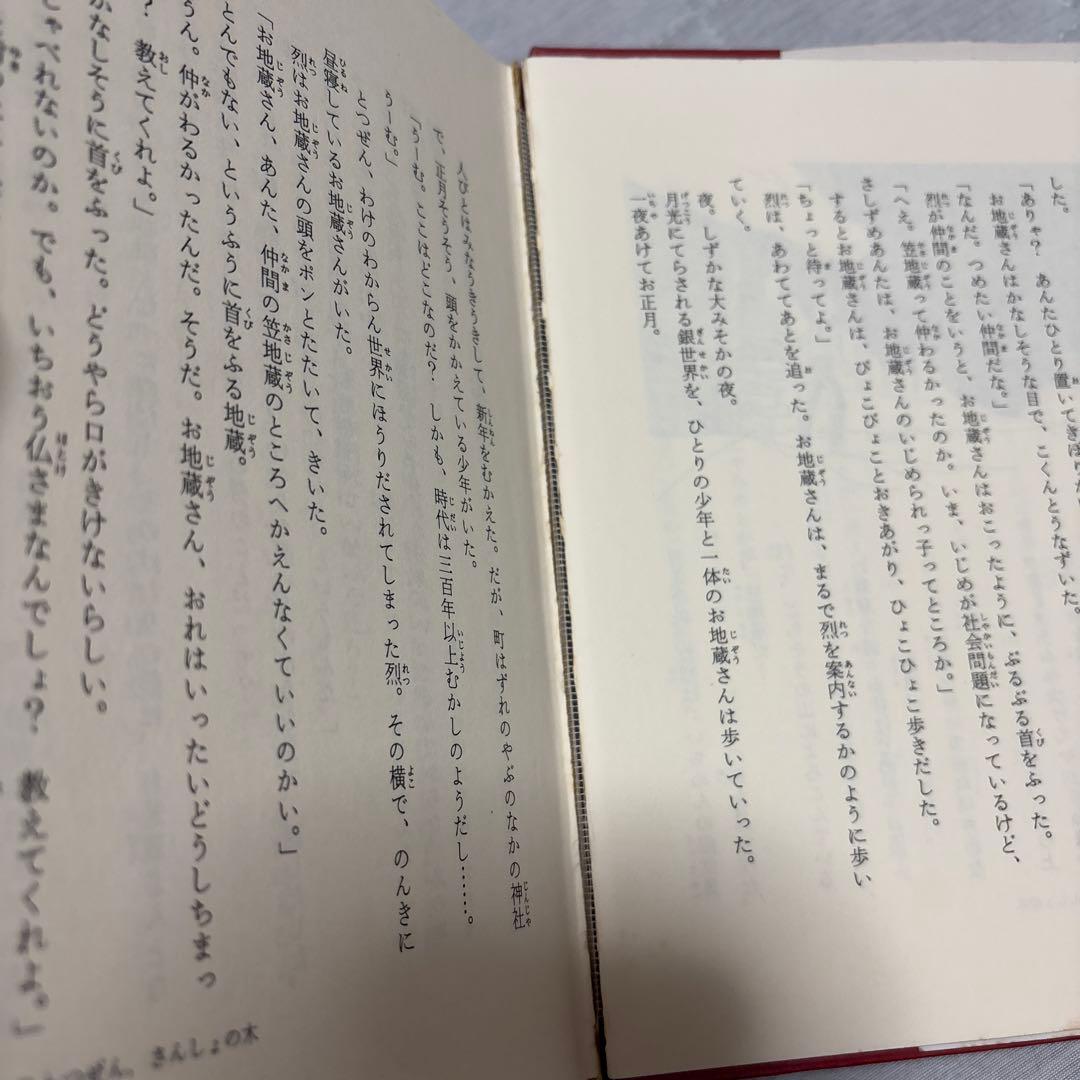 した。
「ありゃ？　あんたひとり置いてきぼり
お地蔵さんはかなしそうな目で、こくんとうなずいた。
「なんだ。つめたい仲間だな。」
烈が仲間のことをいうと、お地蔵さんはおこったように、ぶるぶる首をふった。
「へえ。笠地蔵って仲わるかったのか。いま、いじめが社会問題になっているけど、
さしずめあんたは、お地蔵さんのいじめられっ子ってところか。」
するとお地蔵さんは、ぴょこぴょことおきあがり、ひょこひょこ歩きだした。
「ちょっと待ってよ。」
烈は、あわててあとを追った。お地蔵さんは、まるで烈を案内するかのように歩い
ていく。
夜。しずかな大みそかの夜。
月光にてらされる銀世界を、ひとりの少年と一体のお地蔵さんは歩いていった。
一夜あけてお正月。
人びとはみなうきうきして、新年をむかえた。だが、町はずれのやぶのなかの神社
で、正月そうそう、頭をかかえている少年がいた。
「うーむ。ここはどこなのだ？　しかも、時代は三百年以上むかしのようだし……。
うーむ。」
とつぜん、わけのわからん世界にほうりだされてしまった烈。その横で、のんきに
昼寝しているお地蔵さんがいた。
烈はお地蔵さんの頭をポンとたたいて、きいた。
「お地蔵さん、あんた、仲間の笠地蔵のところへかえんなくていいのかい。」
とんでもない、というふうに首をふる地蔵。
うん。仲がわるかったんだ。そうだ。お地蔵さん、おれはいったいどうしちまっ
？　教えてくれよ。」
かなしそうに首をふった。どうやら口がきけないらしい。
しゃべれないのか。でも、いちおう仏さまなんでしょ？　教えてくれよ。」
つぜん、さんしょの木